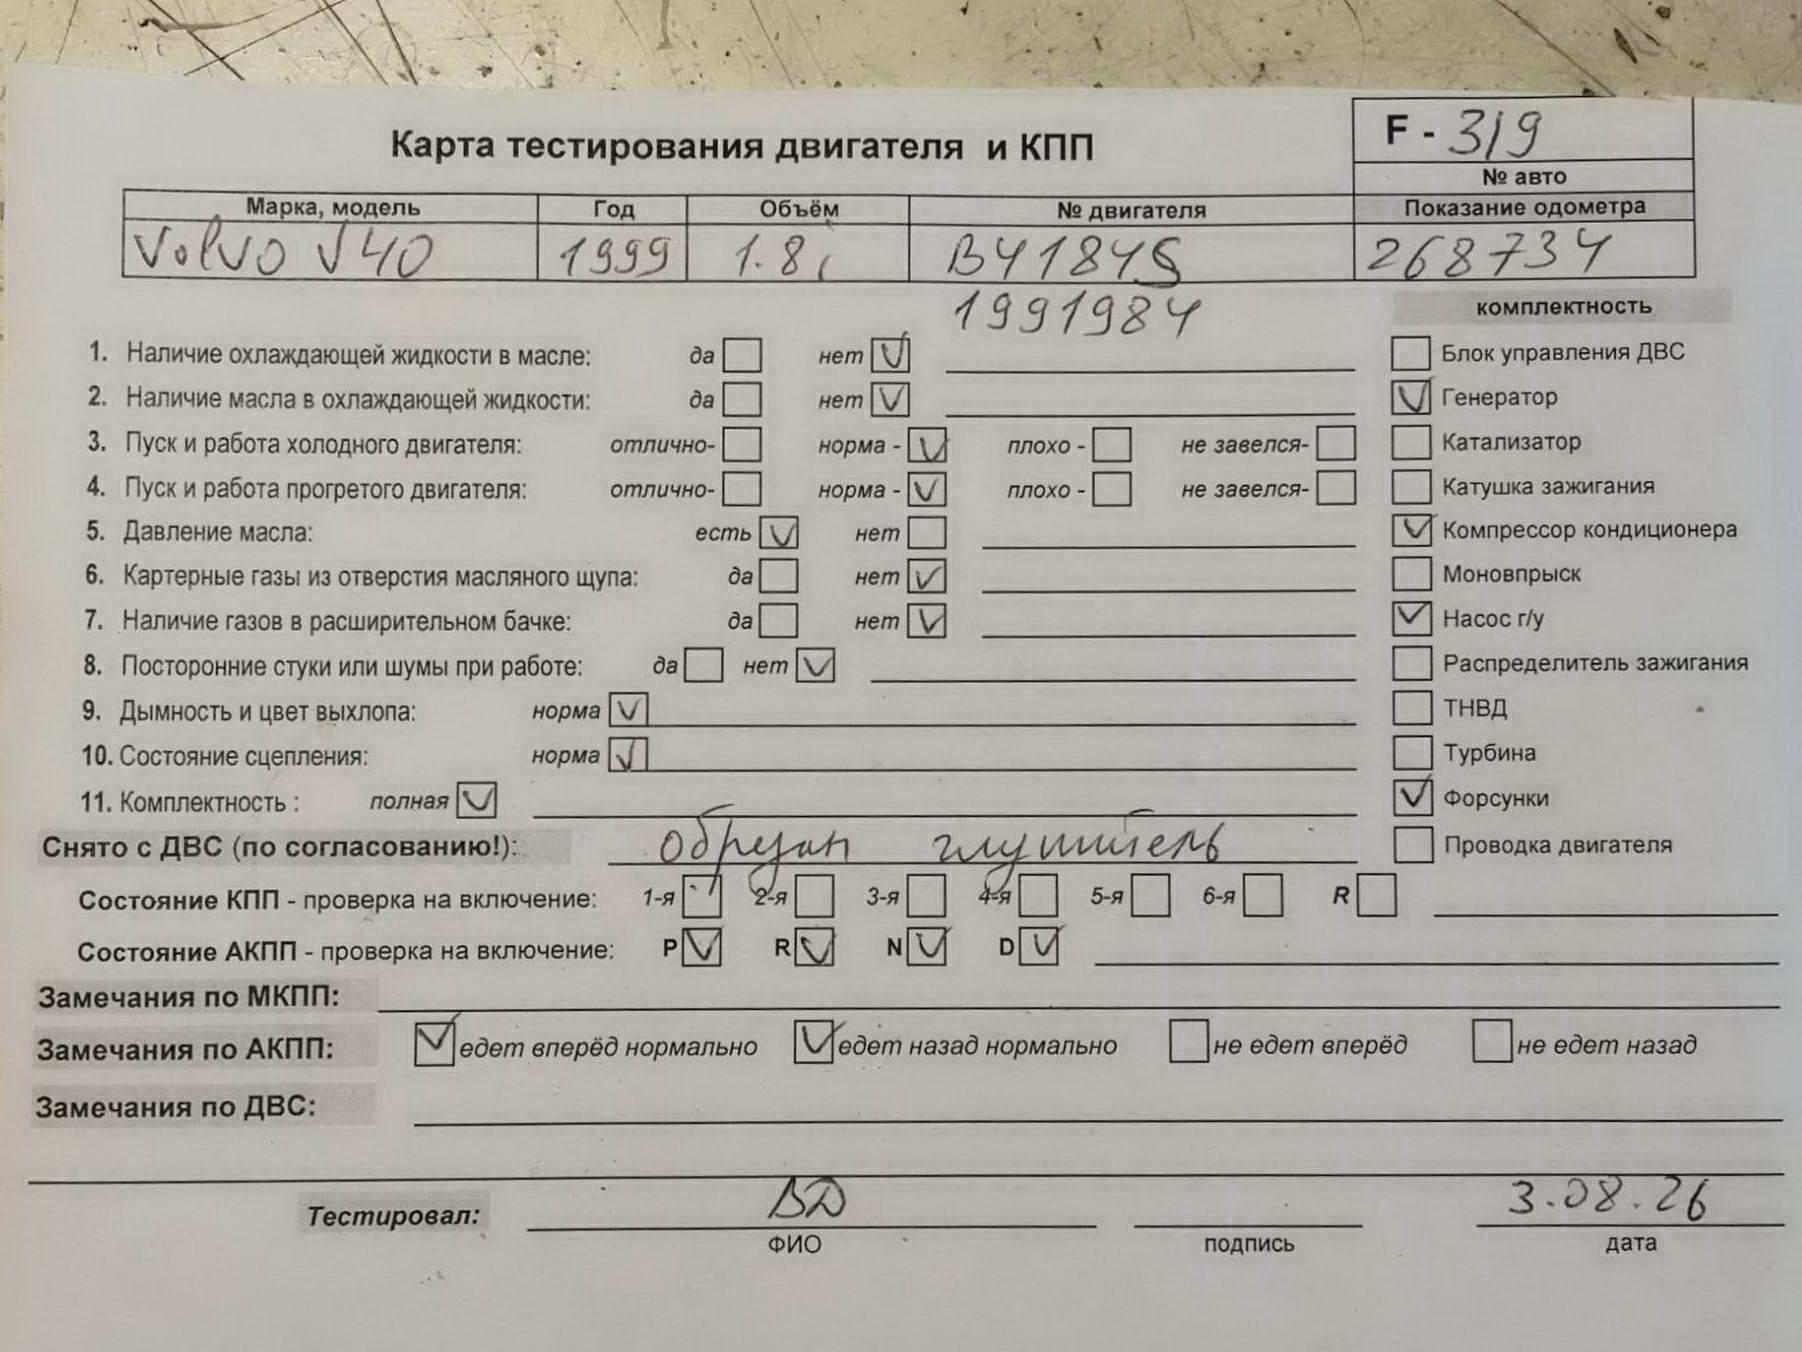 Карта тестирования двигателя и КПП
F - 319
№ авто
Марка, модель Год Объём № двигателя Показание одометра
Volvo V40 1999 1.8i B4184S 268734
1991984
комплектность
1. Наличие охлаждающей жидкости в масле: да нет
Блок управления ДВС
2. Наличие масла в охлаждающей жидкости: да нет
Генератор
3. Пуск и работа холодного двигателя: отлично- норма - плохо - не завелся-
Катализатор
4. Пуск и работа прогретого двигателя: отлично- норма - плохо - не завелся-
Катушка зажигания
5. Давление масла: есть нет
Компрессор кондиционера
6. Картерные газы из отверстия масляного щупа: да нет
Моновпрыск
7. Наличие газов в расширительном бачке: да нет
Насос г/у
8. Посторонние стуки или шумы при работе: да нет
Распределитель зажигания
9. Дымность и цвет выхлопа: норма
ТНВД
10. Состояние сцепления: норма
Турбина
11. Комплектность : полная
Форсунки
Снято с ДВС (по согласованию!): обрезан глушитель
Проводка двигателя
Состояние КПП - проверка на включение: 1-я 2-я 3-я 4-я 5-я 6-я R
Состояние АКПП - проверка на включение: P R N D
Замечания по МКПП:
Замечания по АКПП: едет вперёд нормально едет назад нормально не едет вперёд не едет назад
Замечания по ДВС:
Тестировал: ВД 3.08.26
ФИО подпись дата